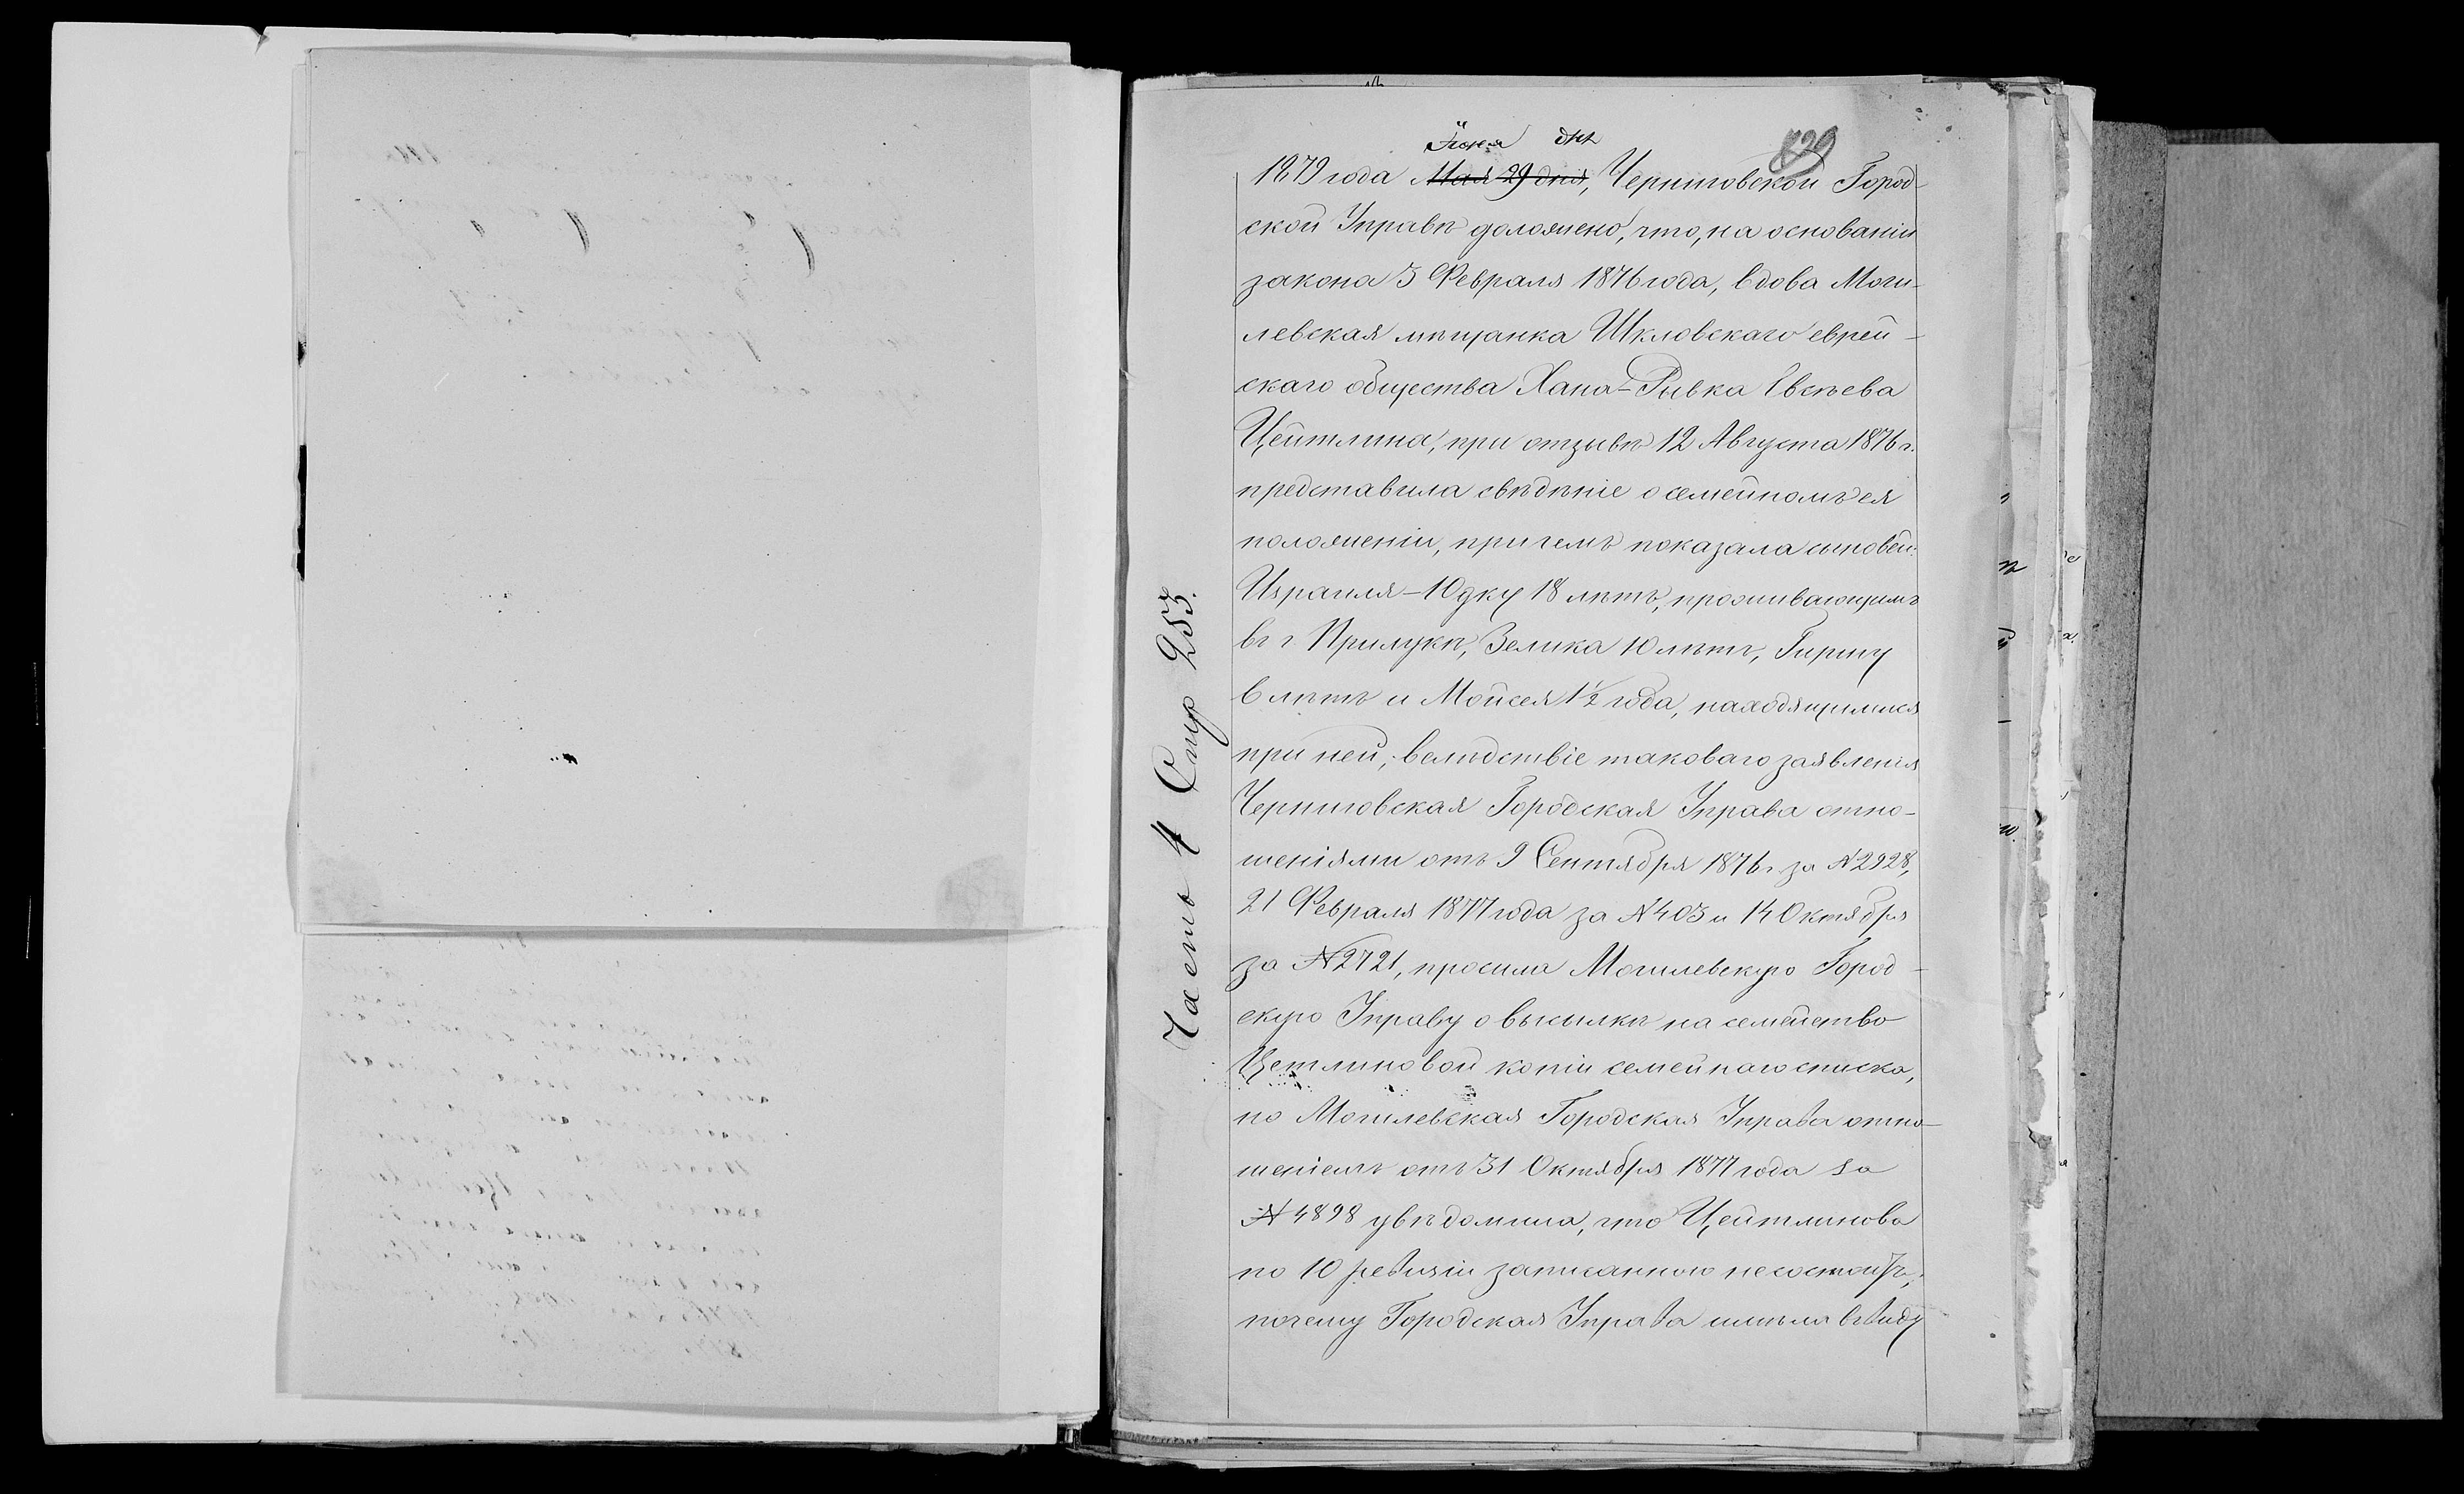 129
Іюня дня
1879 года Мая 29 дня, Черниговской Город-
ской Управѣ доложено, что, на основаніи
закона 3 Февраля 1876 года, вдова Моги-
левская мѣщанка Шкловскаго еврей-
скаго общества Хана-Рывка Евсѣева
Цейтлина, при отзывѣ 12 Августа 1876 г.
представила свѣдѣніе о семейномъ ея
положеніи, при чемъ показала сыновей:
Израиля-Юдку 18 лѣтъ, проживающимъ
въ г. Прилукѣ, Зелика 10 лѣтъ, Гиршу
6 лѣтъ и Мойсея 1½ года, находящимися
при ней; вслѣдствіе таковаго заявленія
Черниговская Городская Управа отно-
шеніями отъ 9 Сентября 1876 г. за № 2928,
21 Февраля 1877 года за № 403 и 14 Октября
за № 2721, просила Могилевскую Город-
скую Управу о высылкѣ на семейство
Цетлиновой копіи семейнаго списка,
но Могилевская Городская Управа отно-
шеніемъ отъ 31 Октября 1877 года за
№ 4898 увѣдомила, что Цейтлинова
по 10 ревизіи записанною не состоитъ,
почему Городская Управа имѣла въ виду
Часть 4 Стр 253.